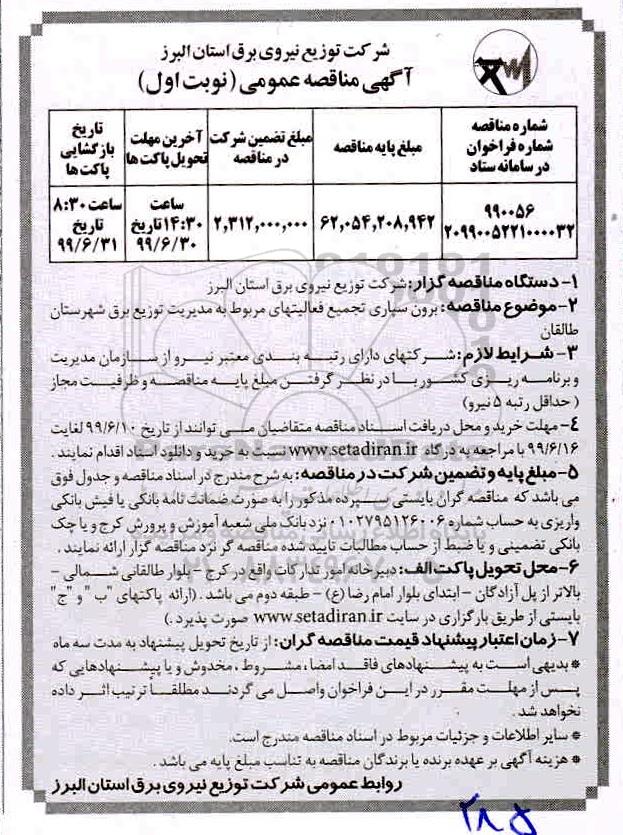 شرکت توزیع نیروی برق استان البرز
آگهی مناقصه عمومی (نوبت اول)
شماره مناقصه شماره فراخوان در سامانه ستاد
مبلغ پایه مناقصه
مبلغ تضمین شرکت در مناقصه
آخرین مهلت تحویل پاکت ها
تاریخ بازگشایی پاکت ها
۹۹۰۰۵۶ ۲۰۹۹۰۰۵۲۲۱۰۰۰۰۳۲
۶۲,۰۵۴,۲۰۸,۹۴۲
۲,۳۱۲,۰۰۰,۰۰۰
ساعت ۱۴:۳۰ تاریخ ۹۹/۶/۳۰
ساعت ۸:۳۰ تاریخ ۹۹/۶/۳۱
۱- دستگاه مناقصه گزار: شرکت توزیع نیروی برق استان البرز
۲-موضوع مناقصه: برون سپاری تجمیع فعالیتهای مربوط به مدیریت توزیع برق شهرستان
طالقان
۳- شرایط لازم: شرکتهای دارای رتبه بندی معتبر نیرو از سازمان مدیریت
و برنامه ریزی کشور با در نظر گرفتن مبلغ پایه مناقصه و ظرفیت مجاز
( حداقل رتبه ۵ نیرو)
۴- مهلت خرید و محل دریافت اسناد مناقصه متقاضیان می توانند از تاریخ ۹۹/۶/۱۰ لغایت
۹۹/۶/۱۶ با مراجعه به درگاه www.setadiran.ir نسبت به خرید و دانلود اسناد اقدام نمایند .
۵-مبلغ پایه و تضمین شرکت در مناقصه: به شرح مندرج در اسناد مناقصه و جدول فوق
می باشد که مناقصه گران بایستی سپرده مذکور را به صورت ضمانت نامه بانکی یا فیش بانکی
واریزی به حساب شماره ۰۱۰۲۷۹۵۱۲۶۰۰۶ نزد بانک ملی شعبه آموزش و پرورش کرج و یا چک
بانکی تضمینی و یا ضبط از حساب مطالبات تایید شده مناقصه گر نزد مناقصه گزار ارائه نمایند .
۶-محل تحویل پاکت الف: دبیرخانه امور تدارکات واقع در کرج - بلوار طالقانی شمالی -
بالاتر از پل آزادگان - ابتدای بلوار امام رضا (ع) - طبقه دوم می باشد . (ارائه پاکتهای "ب " و "ج"
بایستی از طریق بارگزاری در سایت www.setadiran.ir صورت پذیرد .)
۷-زمان اعتبار پیشنهاد قیمت مناقصه گران: از تاریخ تحویل پیشنهاد به مدت سه ماه
* بدیهی است به پیشنهادهای فاقد امضا ، مشروط ، مخدوش و یا پیشنهادهایی که
پس از مهلت مقرر در این فراخوان واصل می گردند مطلقا ترتیب اثر داده
نخواهد شد .
* سایر اطلاعات و جزئیات مربوط در اسناد مناقصه مندرج است.
* هزینه آگهی بر عهده برنده یا برندگان مناقصه به تناسب مبلغ پایه می باشد .
روابط عمومی شرکت توزیع نیروی برق استان البرز